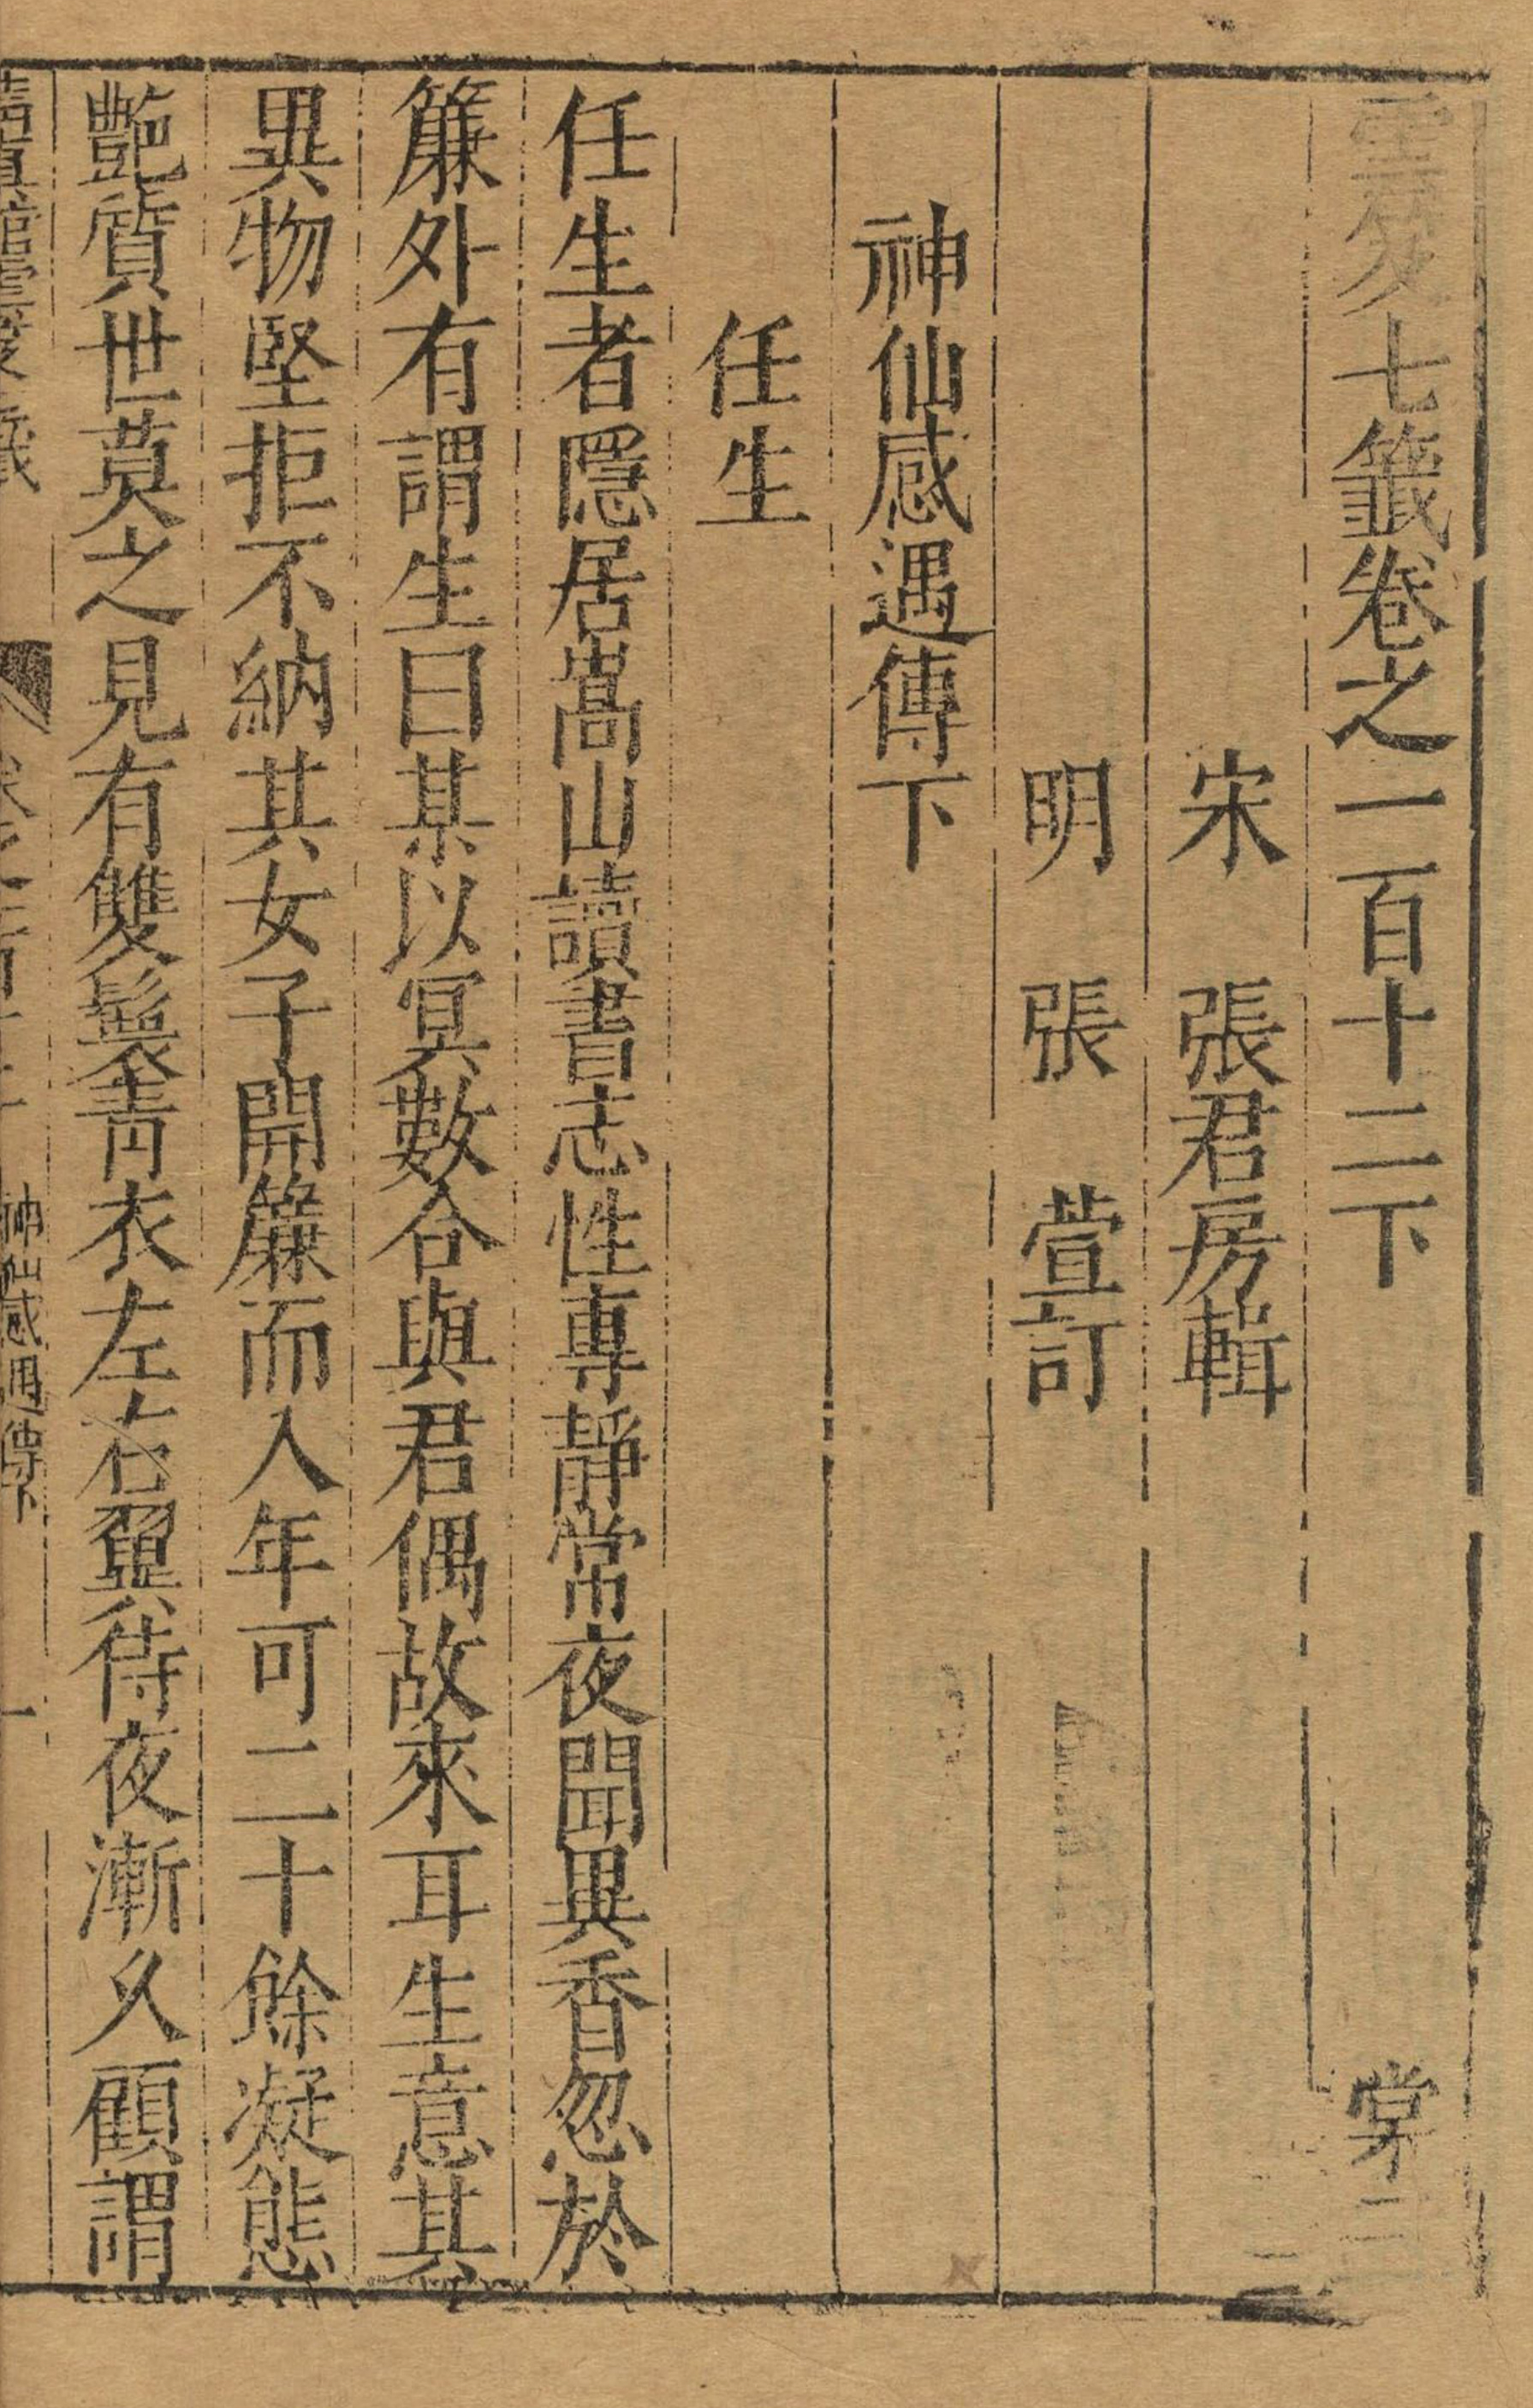 雲笈七籤卷之一百十三下 棠三
宋 張君房輯
明 張 萱訂
神仙感遇傳下
任生
任生者隱居嵩山讀書志性專靜常夜聞異香忽於
簾外有謂生曰某以冥數合與君偶故來耳生意其
異物堅拒不納其女子開簾而入年可二十餘凝態
艷質世莫之見有雙鬟青衣左右翼侍夜漸久顧謂
清真館雲笈七籤 神仙感遇傳下 一